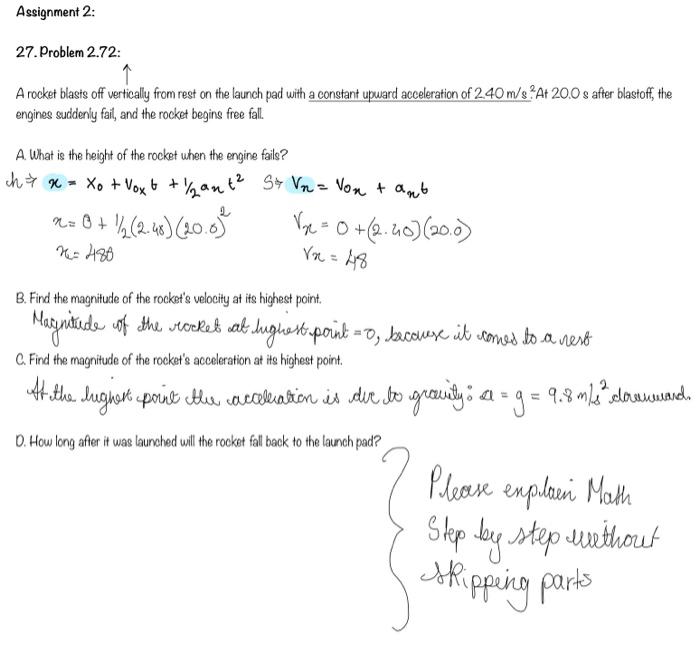 Assignment 2:
27. Problem 2.72:
A rocket blasts off vertically from rest on the launch pad with a constant upward acceleration of 2.40 m/s². At 20.0 s after blastoff, the
engines suddenly fail, and the rocket begins free fall.
A. What is the height of the rocket when the engine fails?
x = x₀ + v₀ₓt + ½aₓt² Vₓ = V₀ₓ + aₓt
x = 0 + ½(2.40)(20.0)² Vₓ = 0 + (2.40)(20.0)
x = 480 Vx = 48
B. Find the magnitude of the rocket's velocity at its highest point.
Magnitude of the rocket at highest point = 0, because it comes to a rest
C. Find the magnitude of the rocket's acceleration at its highest point.
At the highest point the acceleration is due to gravity: a = g = 9.8 m/s² downward.
D. How long after it was launched will the rocket fall back to the launch pad?
Please explain Math
Step by step without
skipping parts